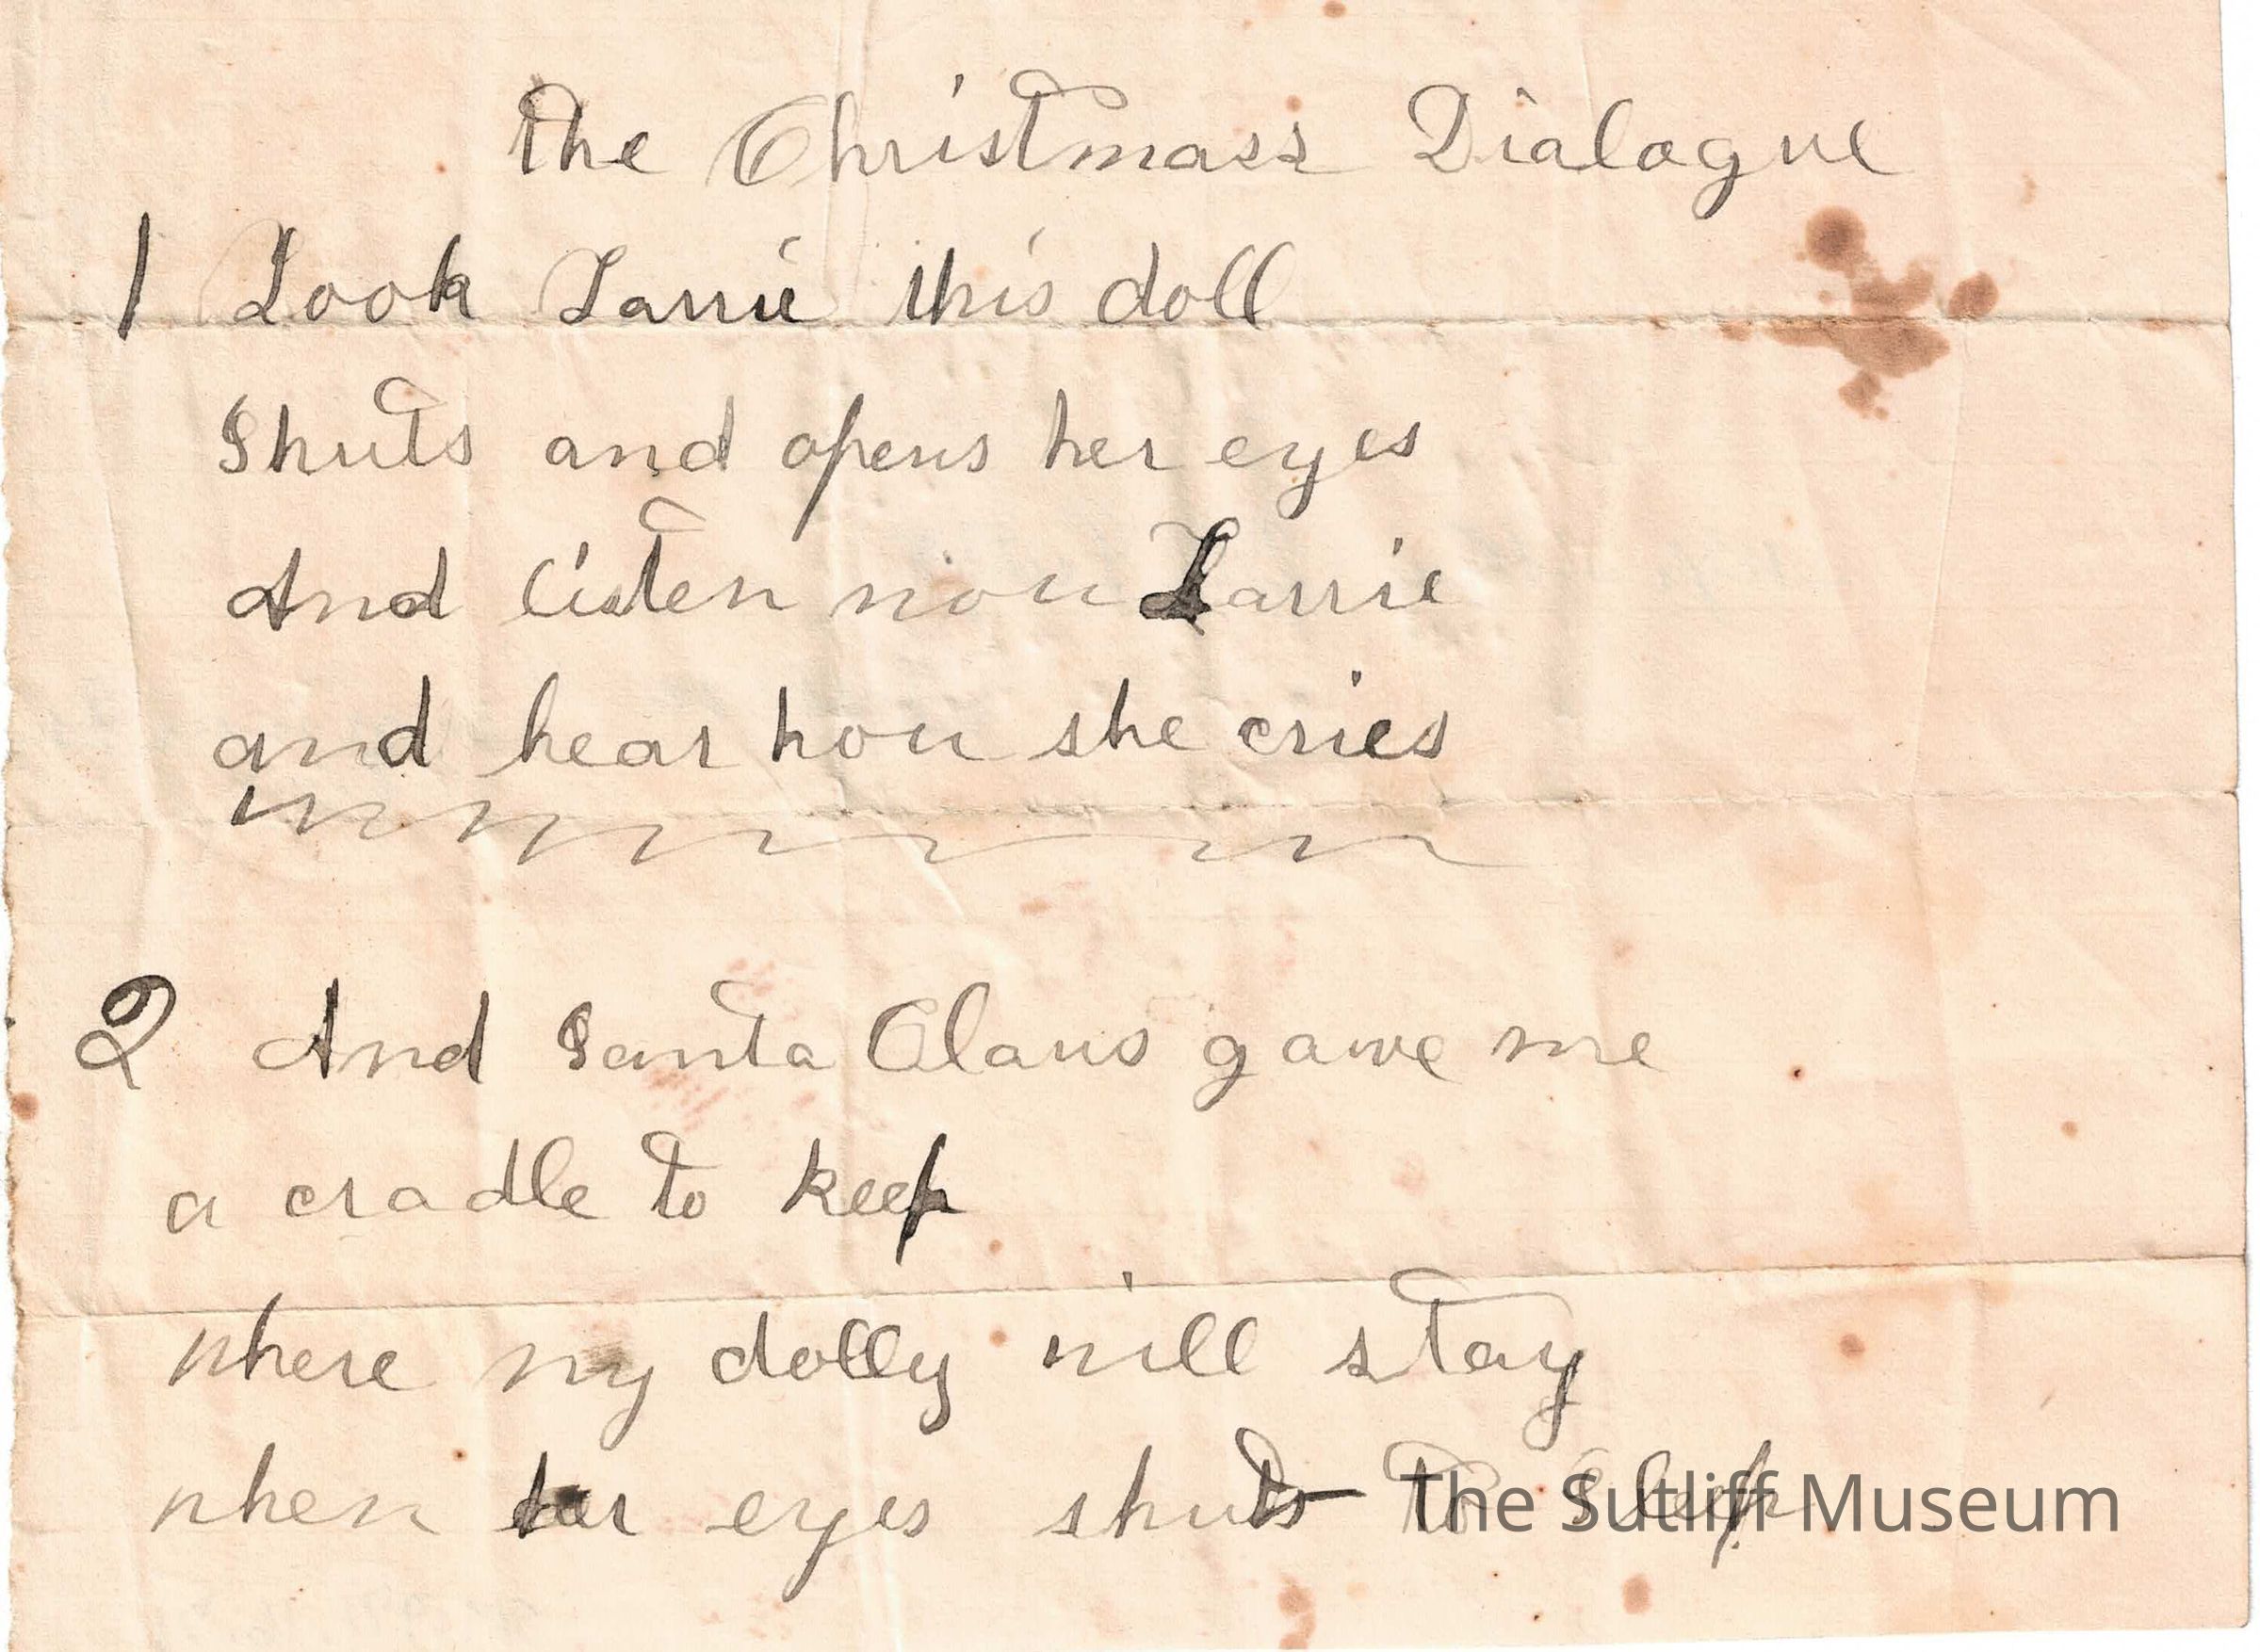 The Christmass Dialogue
1 Look Larrie this doll
Shuts and opens her eyes
And listen now Larrie
and hear how she cries
2 And Santa Claus gave me
a cradle to keep
where my dolly will stay
when her eyes shuts to Sleep
The Sutliff Museum